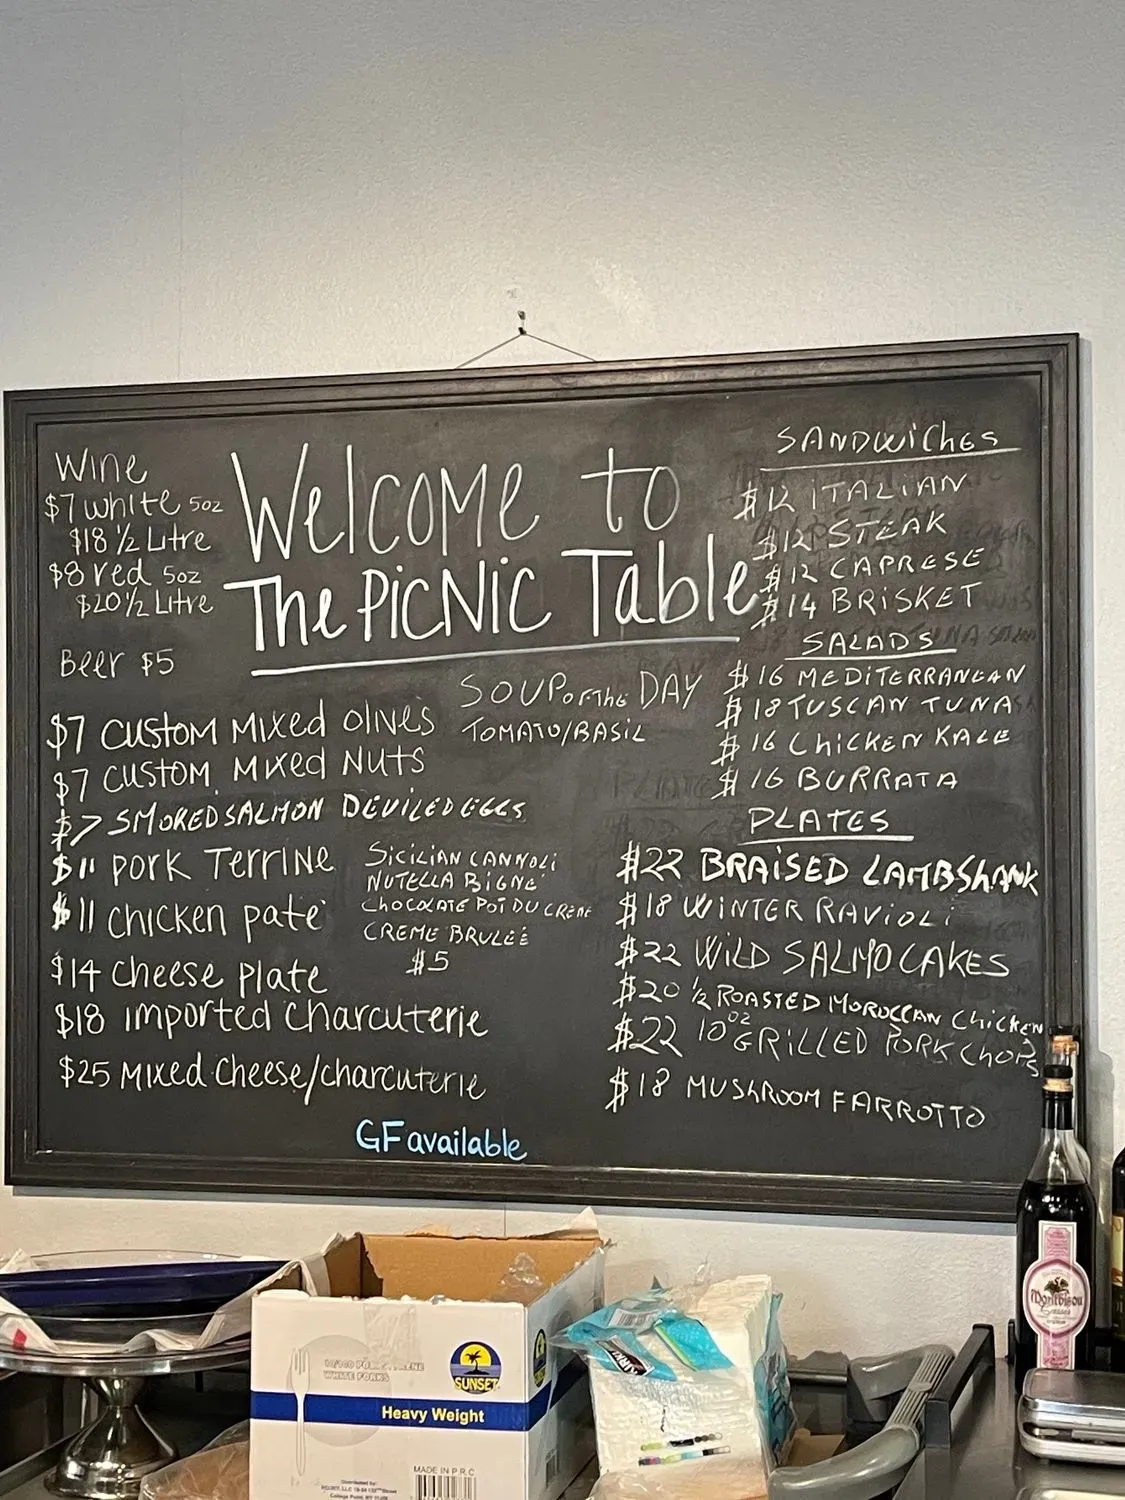 WINE
$7 white 5oz
$18 ½ Litre
$8 red 5oz
$20 ½ Litre
Beer $5
Welcome to
The PICNIC Table
$7 CUSTOM MIXED OLIVES
$7 CUSTOM MIXED NUTS
$7 SMOKED SALMON DEVILED EGGS
$11 PORK TERRINE
$11 Chicken pate
$14 Cheese Plate
$18 Imported Charcuterie
$25 Mixed Cheese/charcuterie
SOUP OF THE DAY
TOMATO/BASIL
SICILIAN CANNOLI
NUTELLA BIGNE'
CHOCOLATE POT DU CREME
CREME BRULEÉ
$5
SANDWICHES
$12 ITALIAN
$12 STEAK
$12 CAPRESE
$14 BRISKET
SALADS
$16 MEDITERRANEAN
$18 TUSCAN TUNA
$16 CHICKEN KALE
$16 BURRATA
PLATES
$22 BRAISED LAMBSHANK
$18 WINTER RAVIOLI
$22 WILD SALMO CAKES
$20 ½ ROASTED MOROCCAN CHICKEN
$22 10oz GRILLED PORK CHOPS
$18 MUSHROOM FARROTTO
GF available
WHITE FORKS
SUNSET
Heavy Weight
MADE IN P.R.C.
Montbisou